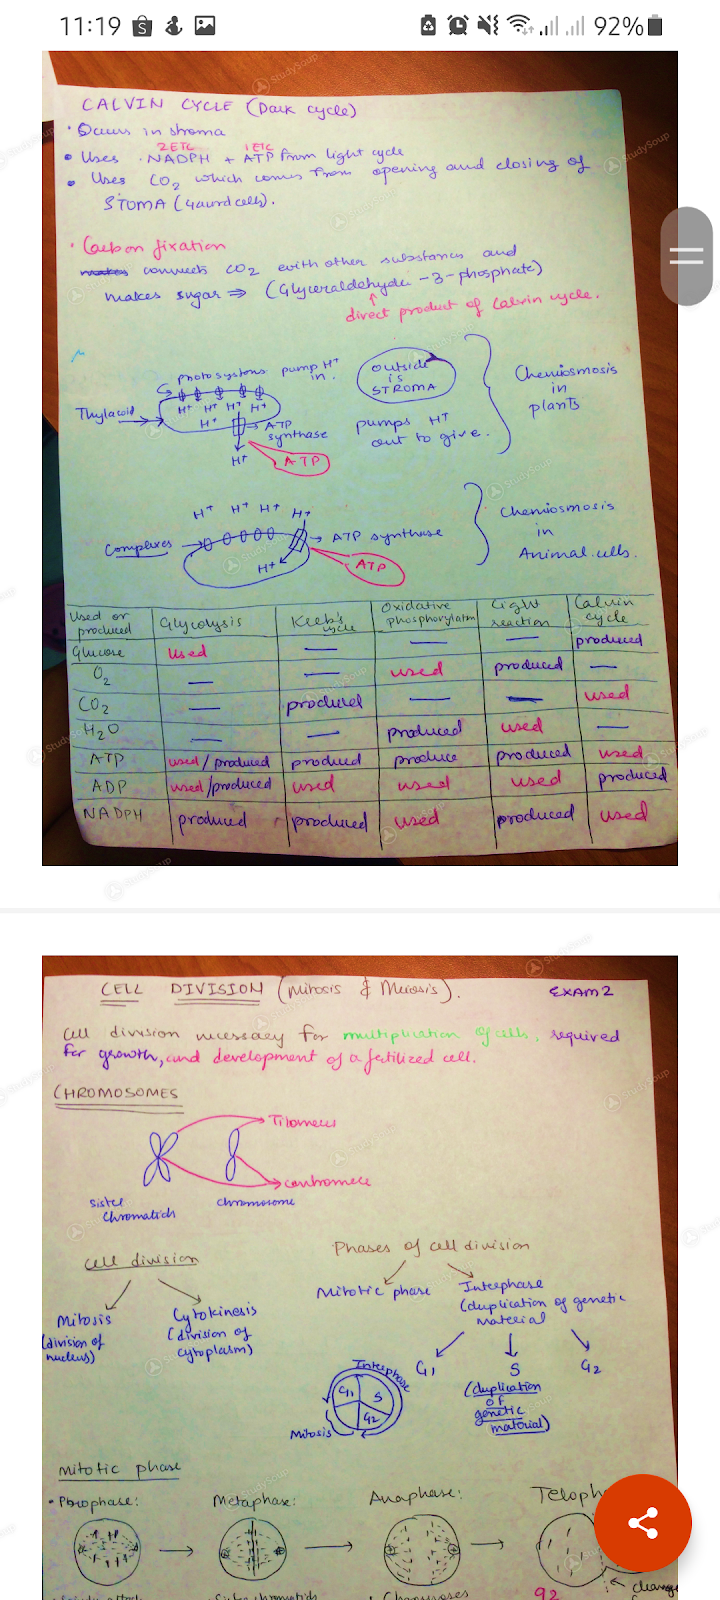 11:19
92%
CALVIN CYCLE (Dark cycle)
• Occurs in stroma
2 ETC 1 ETC
• Uses NADPH + ATP from light cycle
• Uses CO2 which comes from opening and closing of
STOMA (guard cells).
• Carbon fixation
makes connects CO2 with other substances and
makes sugar ⇒ (Glyceraldehyde-3-phosphate)
↑
direct product of Calvin cycle.
Photosystems pump H+
in.
Outside
is
STROMA
Thylacoid
H+ H+ H+ H+
H+
→ ATP
synthase
H+
ATP
pumps H+
out to give.
Chemiosmosis
in
plants
H+ H+ H+ H+
Complexes
→ ATP synthase
H+
ATP
Chemiosmosis
in
Animal cells.
Used or produced Glycolysis Kreb's cycle Oxidative phosphorylatn Light reaction Calvin cycle
Glucose used — — — produced
O2 — — used produced —
CO2 — produced — — used
H2O — — produced used —
ATP used/produced produced produce produced used
ADP used/produced used used used produced
NADPH produced produced used produced used
CELL DIVISION (mitosis & Meiosis).
EXAM 2
Cell division necessary for multiplication of cells, required
for growth, and development of a fertilized cell.
CHROMOSOMES
Tilomeres
centromere
Sister
Chromatids
chromosome
cell division
Mitosis
(division of
nucleus)
Cytokinesis
(division of
cytoplasm)
Phases of cell division
Mitotic phase
Interphase
(duplication of genetic
material
G1
S
(duplication
of
genetic
material)
G2
Interphase
G1 S
G2
Mitosis
Mitotic phase
• Prophase:
Metaphase:
Anaphase:
Teloph
92